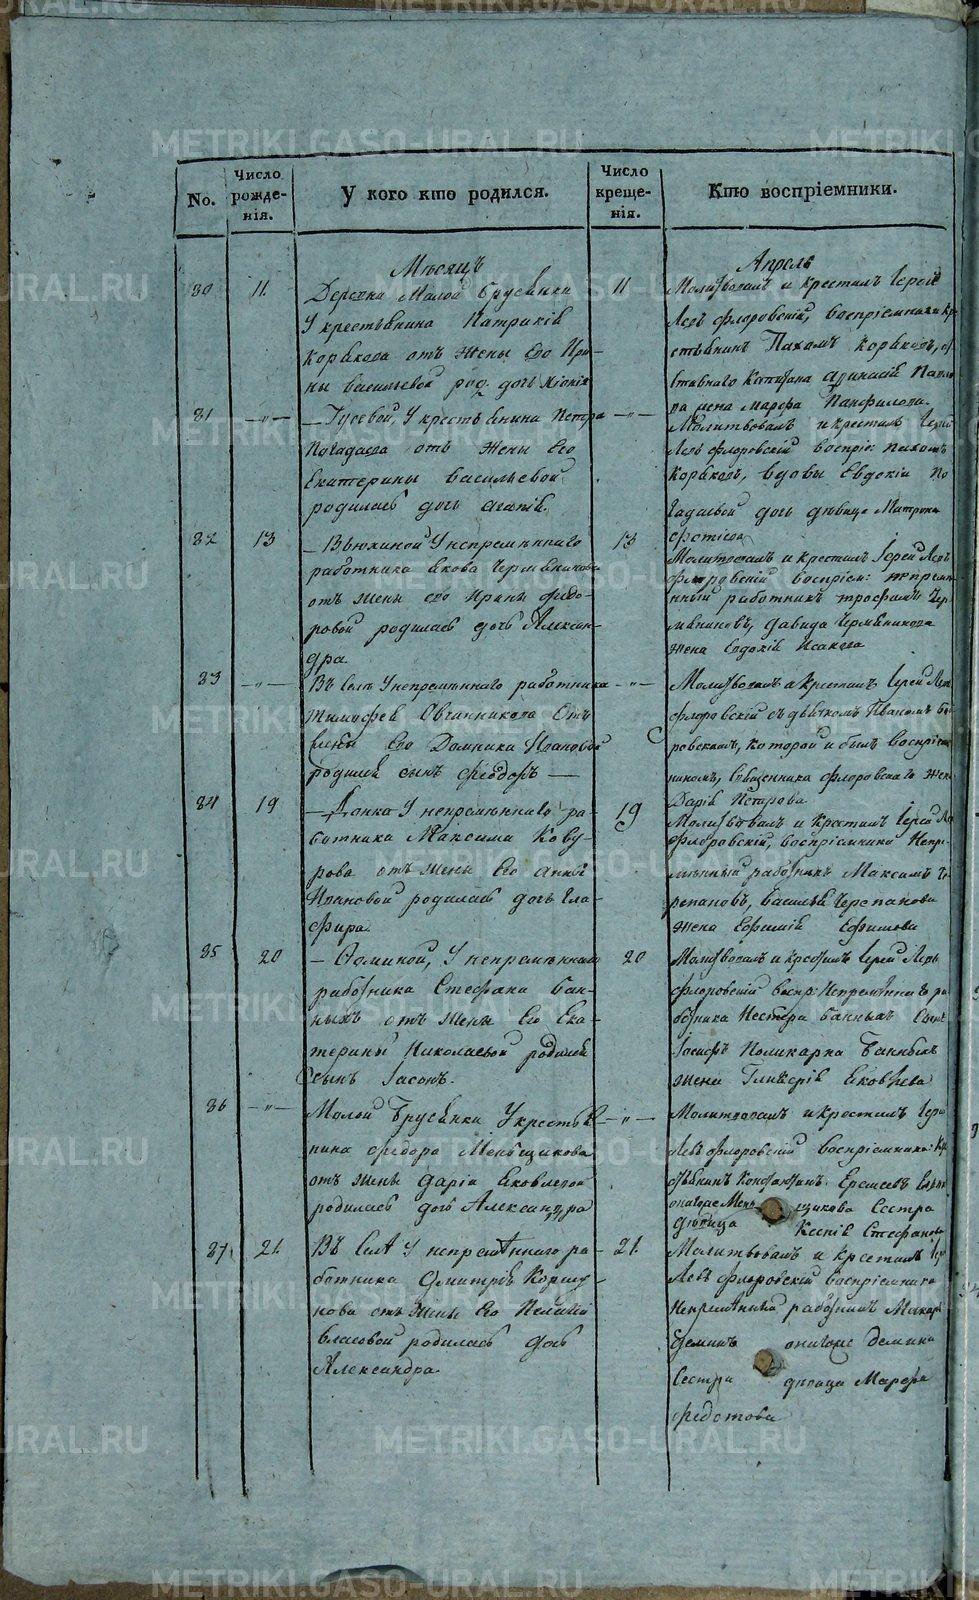 No.
Число рожде-нія.
У кого кто родился.
Число креще-нія.
Кто воспріемники.
Мѣсяцъ
Апрель
80
11.
Деревни Малой Брусянки
У крестьянина Патрикія
Корякова отъ жены его Ири-
ны Васильевой род. дочь
11
Молитвовалъ и крестилъ Іерей
Левъ Флоровскій, воспріемники кр
стьянинъ Пахомъ Коряковъ,
жена Марфа Панфилова.
81
—„—
— Гусевой, У крестьянина Петра
Погадаева отъ жены Его
Екатерины Васильевой
родилась дочь Агапія.
—„—
Молитвовалъ и крестилъ Іерей
Левъ Флоровскій воспріе: Пахомъ
Коряковъ, вдовы Евдокіи По
гадаевой дочь дѣвица Матрона
Фотіева
82
13
— Вьюхиной У непремѣннаго
работника Якова Чермянинова
отъ жены его Ирины Федо-
ровой родилась дочь Алексан-
дра.
13
Молитвовалъ и крестилъ Іерей Левъ
Флоровскій воспріем: непремѣ
нный работникъ Трофимъ Чер-
мяниновъ, Давида Чермянинова
жена Евдокія Исакова
83
—„—
Въ Селѣ У непремѣннаго работника
Тимофея Овчинникова Отъ
жены Его Домники Ивановой
родился сынъ Феодоръ —
—„—
Молитвовалъ и крестилъ Іерей Левъ
Флоровскій съ дьячкомъ Иваномъ Бо
ровскимъ, которой и былъ воспріем
никомъ, Священника Флоровскаго жена
Дарія Петрова
84
19
— У непремѣннаго ра-
ботника Максима Кову-
рова отъ жены Его Анны
Ивановой родилась дочь Гла-
фира.
19
Молитвовалъ и крестилъ Іерей Ле
Флоровскій, воспріемники Непре-
мѣнный работникъ Максимъ Че
репановъ, Василья Черепанова
жена Ефимія Ефимова
85
20
— У непремѣннаго
работника Стефана Бан-
ныхъ отъ жены Его Ека-
терины Николаевой родился
сынъ Іасонъ.
20
Молитвовалъ и крестилъ Іерей Левъ
Флоровскій воспр: Непремѣннаго ра
ботника Нестера Банныхъ Сынъ
Іосифъ Поликарпа Банныхъ
жена Гликерія Яковлева
86
—„—
Малой Брусянки У крестья
нина Федора Меньщикова
отъ жены Даріи Яковлевой
родилась дочь Александра
—„—
Молитвовалъ и крестилъ Іере
Левъ Флоровскій воспріемники: Кре
стьянинъ Константинъ
онагоже Мень щикова Сестра
дѣвица Ксенія Стефанова
87
21.
Въ Селѣ У непремѣннаго ра-
ботника Дмитрія Коршу-
нова отъ жены Его Пелагіи
Власовой родилась дочь
Александра.
21.
Молитвовалъ и крестилъ Іер
Левъ Флоровскій воспріемники
Непремѣнный работникъ Макаръ
Деминъ онагоже Демина
Сестра дѣвица Марфа
Федотова
METRIKI.GASO-URAL.RU